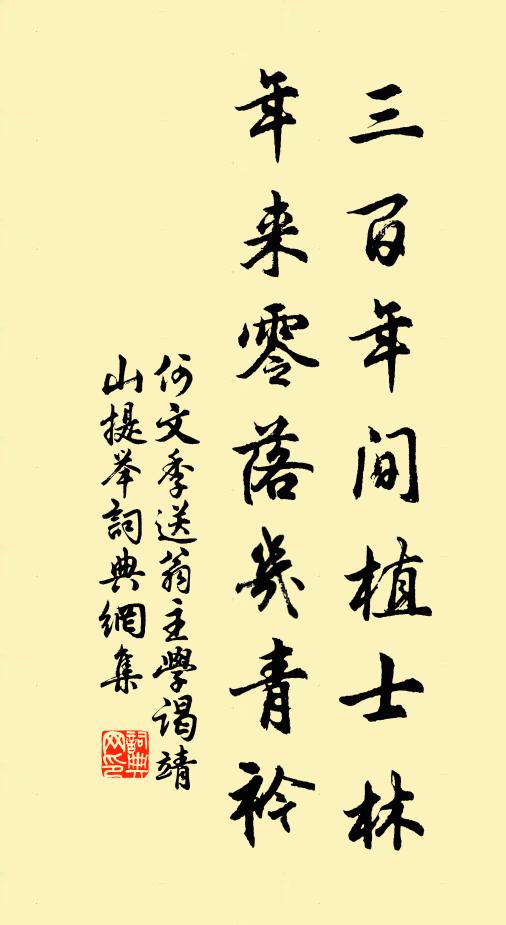 三百年间植士林
年来零落几青衿
何文季送翁主学谒靖
山提举詞典網集
詞典网印